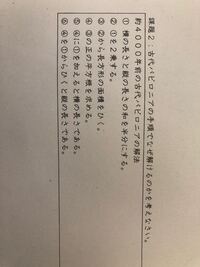 課題２：古代バビロニアの手順でなぜ解けるのかを考えなさい。
約４０００年前の古代バビロニアの解法
① 横の長さと縦の長さの和を半分にする。
② ①を２乗する。
③ ②から長方形の面積をひく。
④ ③の正の平方根を求める。
⑤ ④に①を加えると横の長さである。
⑥ ④を①からひくと縦の長さである。